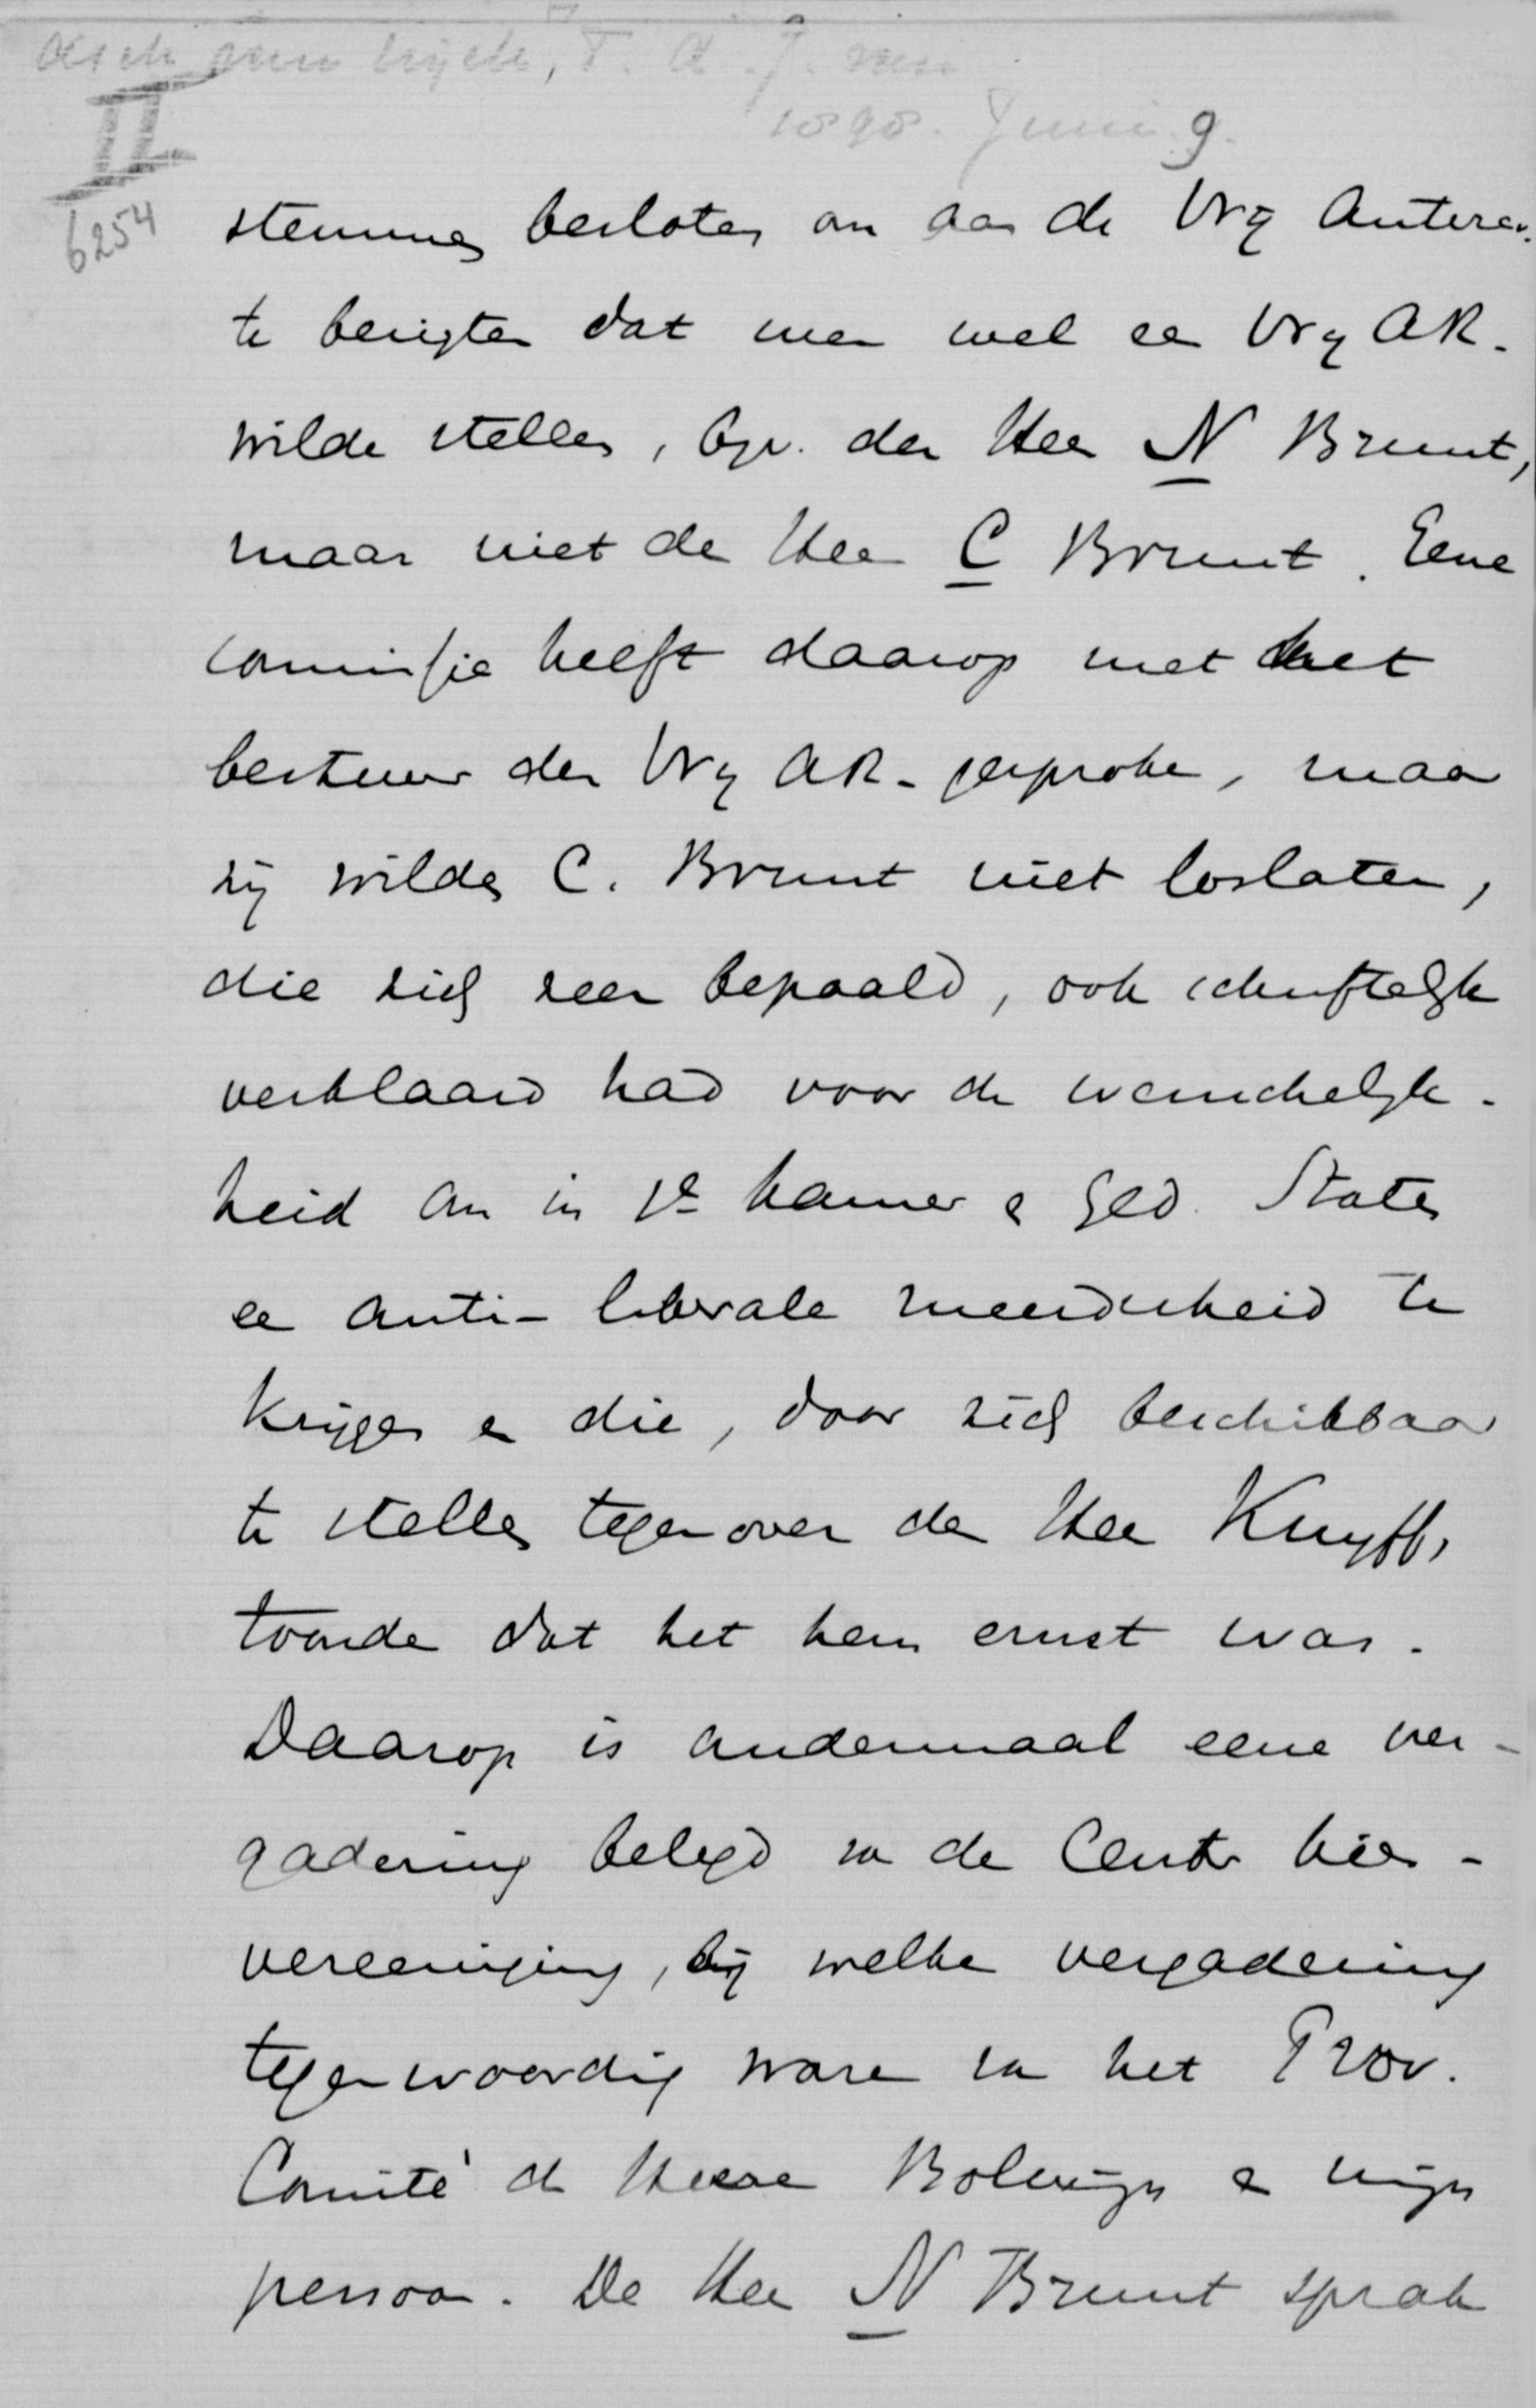 Asch van Wijck, T. A. J. van
1898. Juni 9.
II
6254
stemmen besloten om aan de Vrij Antirev.
te berigten dat men wel een Vrij AR.
wilde stellen, bijv. den Heer N Brunt,
maar niet de Heer C Brunt. Eene
commissie heeft daarop met het
bestuur der Vrij AR. gesproken, maar
zij wilden C. Brunt niet loslaten,
die zich zeer bepaald, ook schriftelijk
verklaard had voor de wenschelijk-
heid om in 1e kamer en Ged. Staten
een anti-liberale meerderheid te
krijgen en die, door zich beschikbaar
te stellen tegenover den Heer Kruyff,
toonde dat het hem ernst was.
Daarop is andermaal eene ver-
gadering belegd van de Centr kies-
vereeniging, bij welke vergadering
tegenwoordig waren van het Prov.
Comité de Heeren en mijn
persoon. De Heer N Brunt sprak